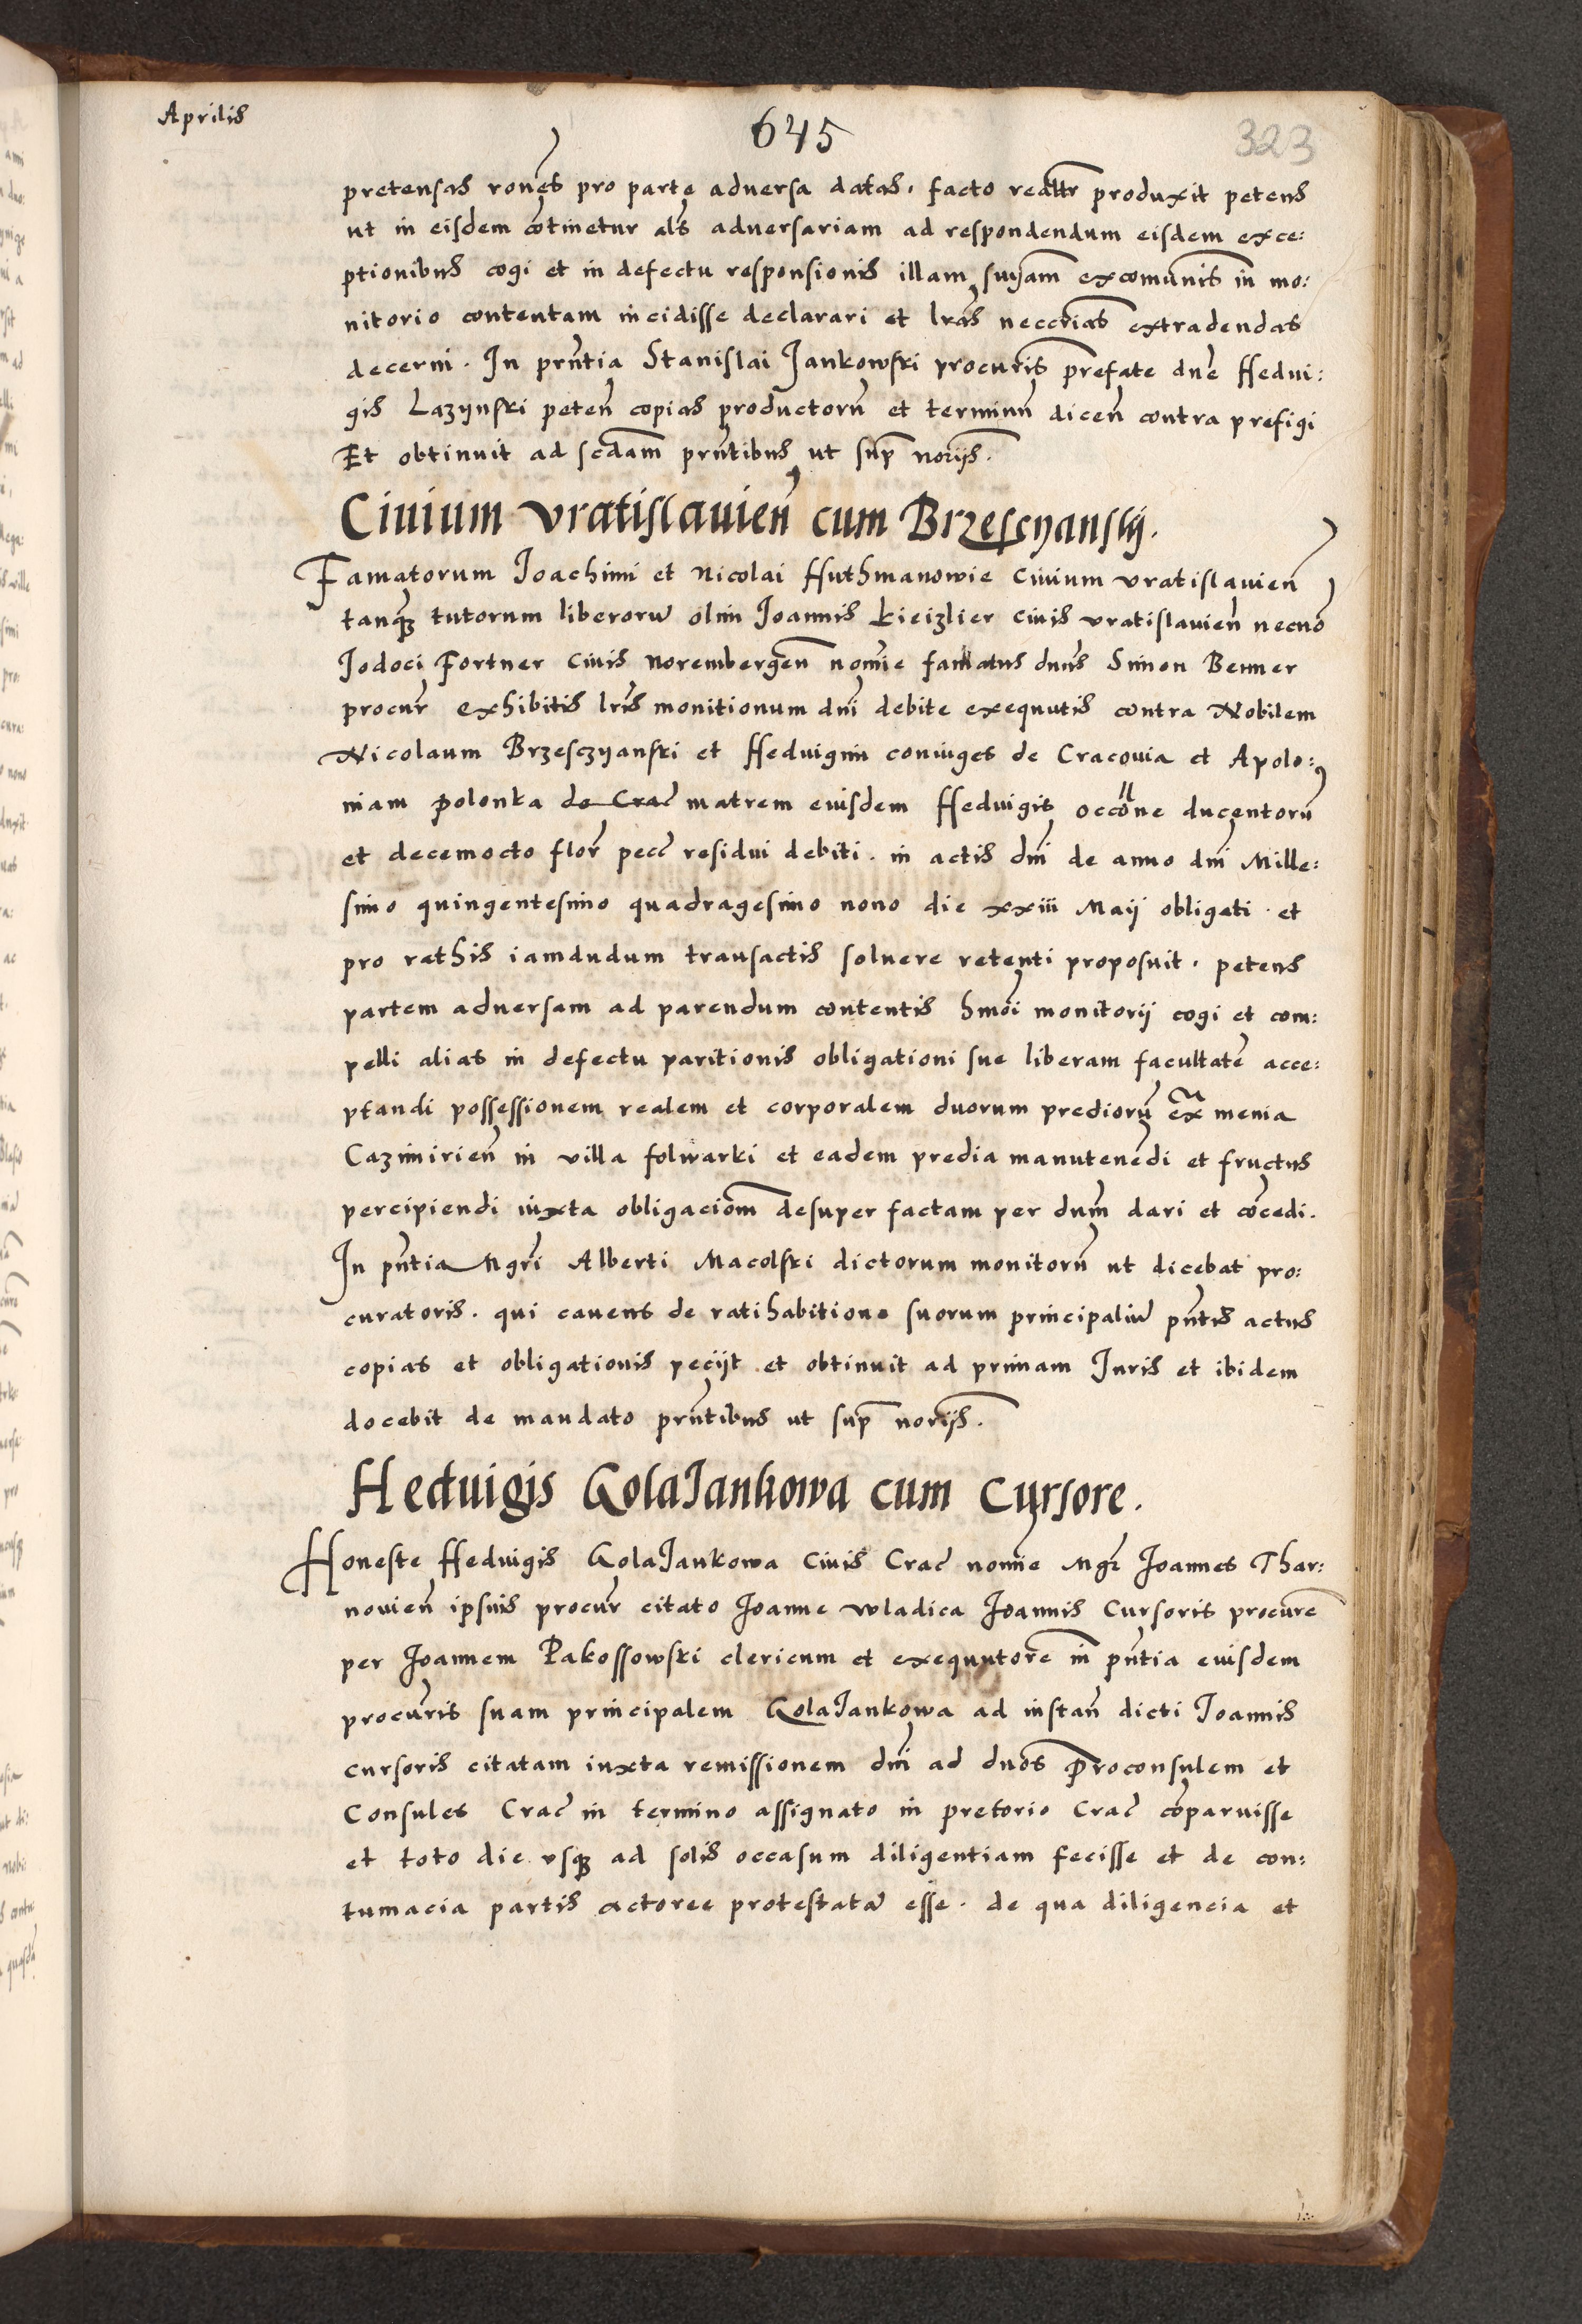 Aprilis
645
323
pretensas rones pro parte adversa datas. facto realtr produxit petens
ut in eisdem cotinetur als adversariam ad respondendum eisdem exce:
ptionibus cogi et in defectu responsionis illam sniam excomunis in mo:
nitorio contentam incidisse declarari et lras neccrias extradendas
decerni. In prntia Stanislai Jankowski procuris prefate dne Hedui:
gis Lazynski peten copias productoru et terminu dicen contra prefigi
Et obtinuit ad scdam prntibus ut sup norijs.
Civium Vratislavien cum Brzesczyanskij.
Famatorum Joachimi et Nicolai Huthmanowie Civium Vratislavien
tanq3 tutorum liberoru olim Joannis Kieizlier Civis Vratislavien necno
Jodoci Fortner Civis Norembergen nomie famatus duns Simon Bemer
procur exhibitis lris monitionum dni debite exequutis contra Nobilem
Nicolaum Brzesczyanski et Heduigim coniuges de Cracovia et Apolo:
niam polonka de Crac matrem eiusdem Heduigis occone ducentoru
et decemocto flor pecc residui debiti. in actis dni de anno dni Mille:
simo quingentesimo quadragesimo nono die xxiii Maij obligati. et
pro rathis iamdudum transactis soluere retenti proposuit. petens
partem aduersam ad parendum contentis hmoi monitorij cogi et com:
pelli alias in defectu paritionis obligationi sue liberam facultate acce:
ptandi possessionem realem et corporalem duorum predioru exa menia
Cazimirien in villa folwarki et eadem predia manutenedi et fructus
percipiendi iuxta obligaciom desuper factam per dum dari et cocedi.
In pntia Mgri Alberti Macolski dictorum monitoru ut dicebat pro:
curatoris. qui cavens de ratihabitione suorum principaliu pntis actus
copias et obligationis peciit et obtinuit ad primam Juris et ibidem
docebit de mandato prntibus ut sup norijs.
Heduigis GolaJankowa cum Cursore.
Honeste Heduigis GolaJankowa Civis Crac nomie Mgr Joannes Thar:
novien ipsius procur citato Joanne Wladica Joannis Cursoris procure
per Joannem Pakossowski clericum et exequutore in pntia eiusdem
procuris suam principalem GolaJankowa ad instan dicti Joannis
cursoris citatam iuxta remissionem dni ad duos Proconsulem et
Consules Crac in termino assignato in pretorio Crac coparuisse
et toto die vsq3 ad solis occasum diligentiam fecisse et de con:
tumacia partis actoree protestata esse. de qua diligencia et